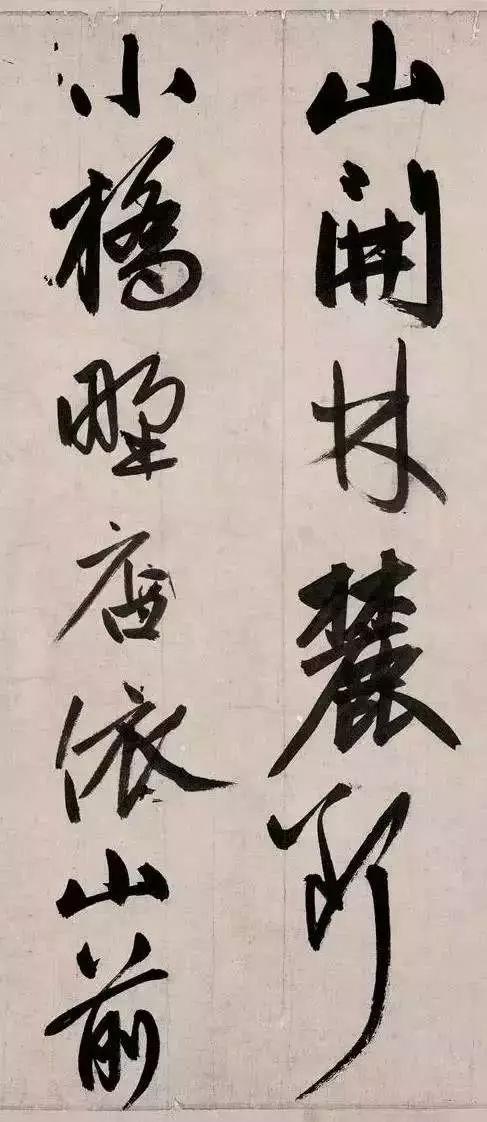 山開林麓斷
小橋野店依山前